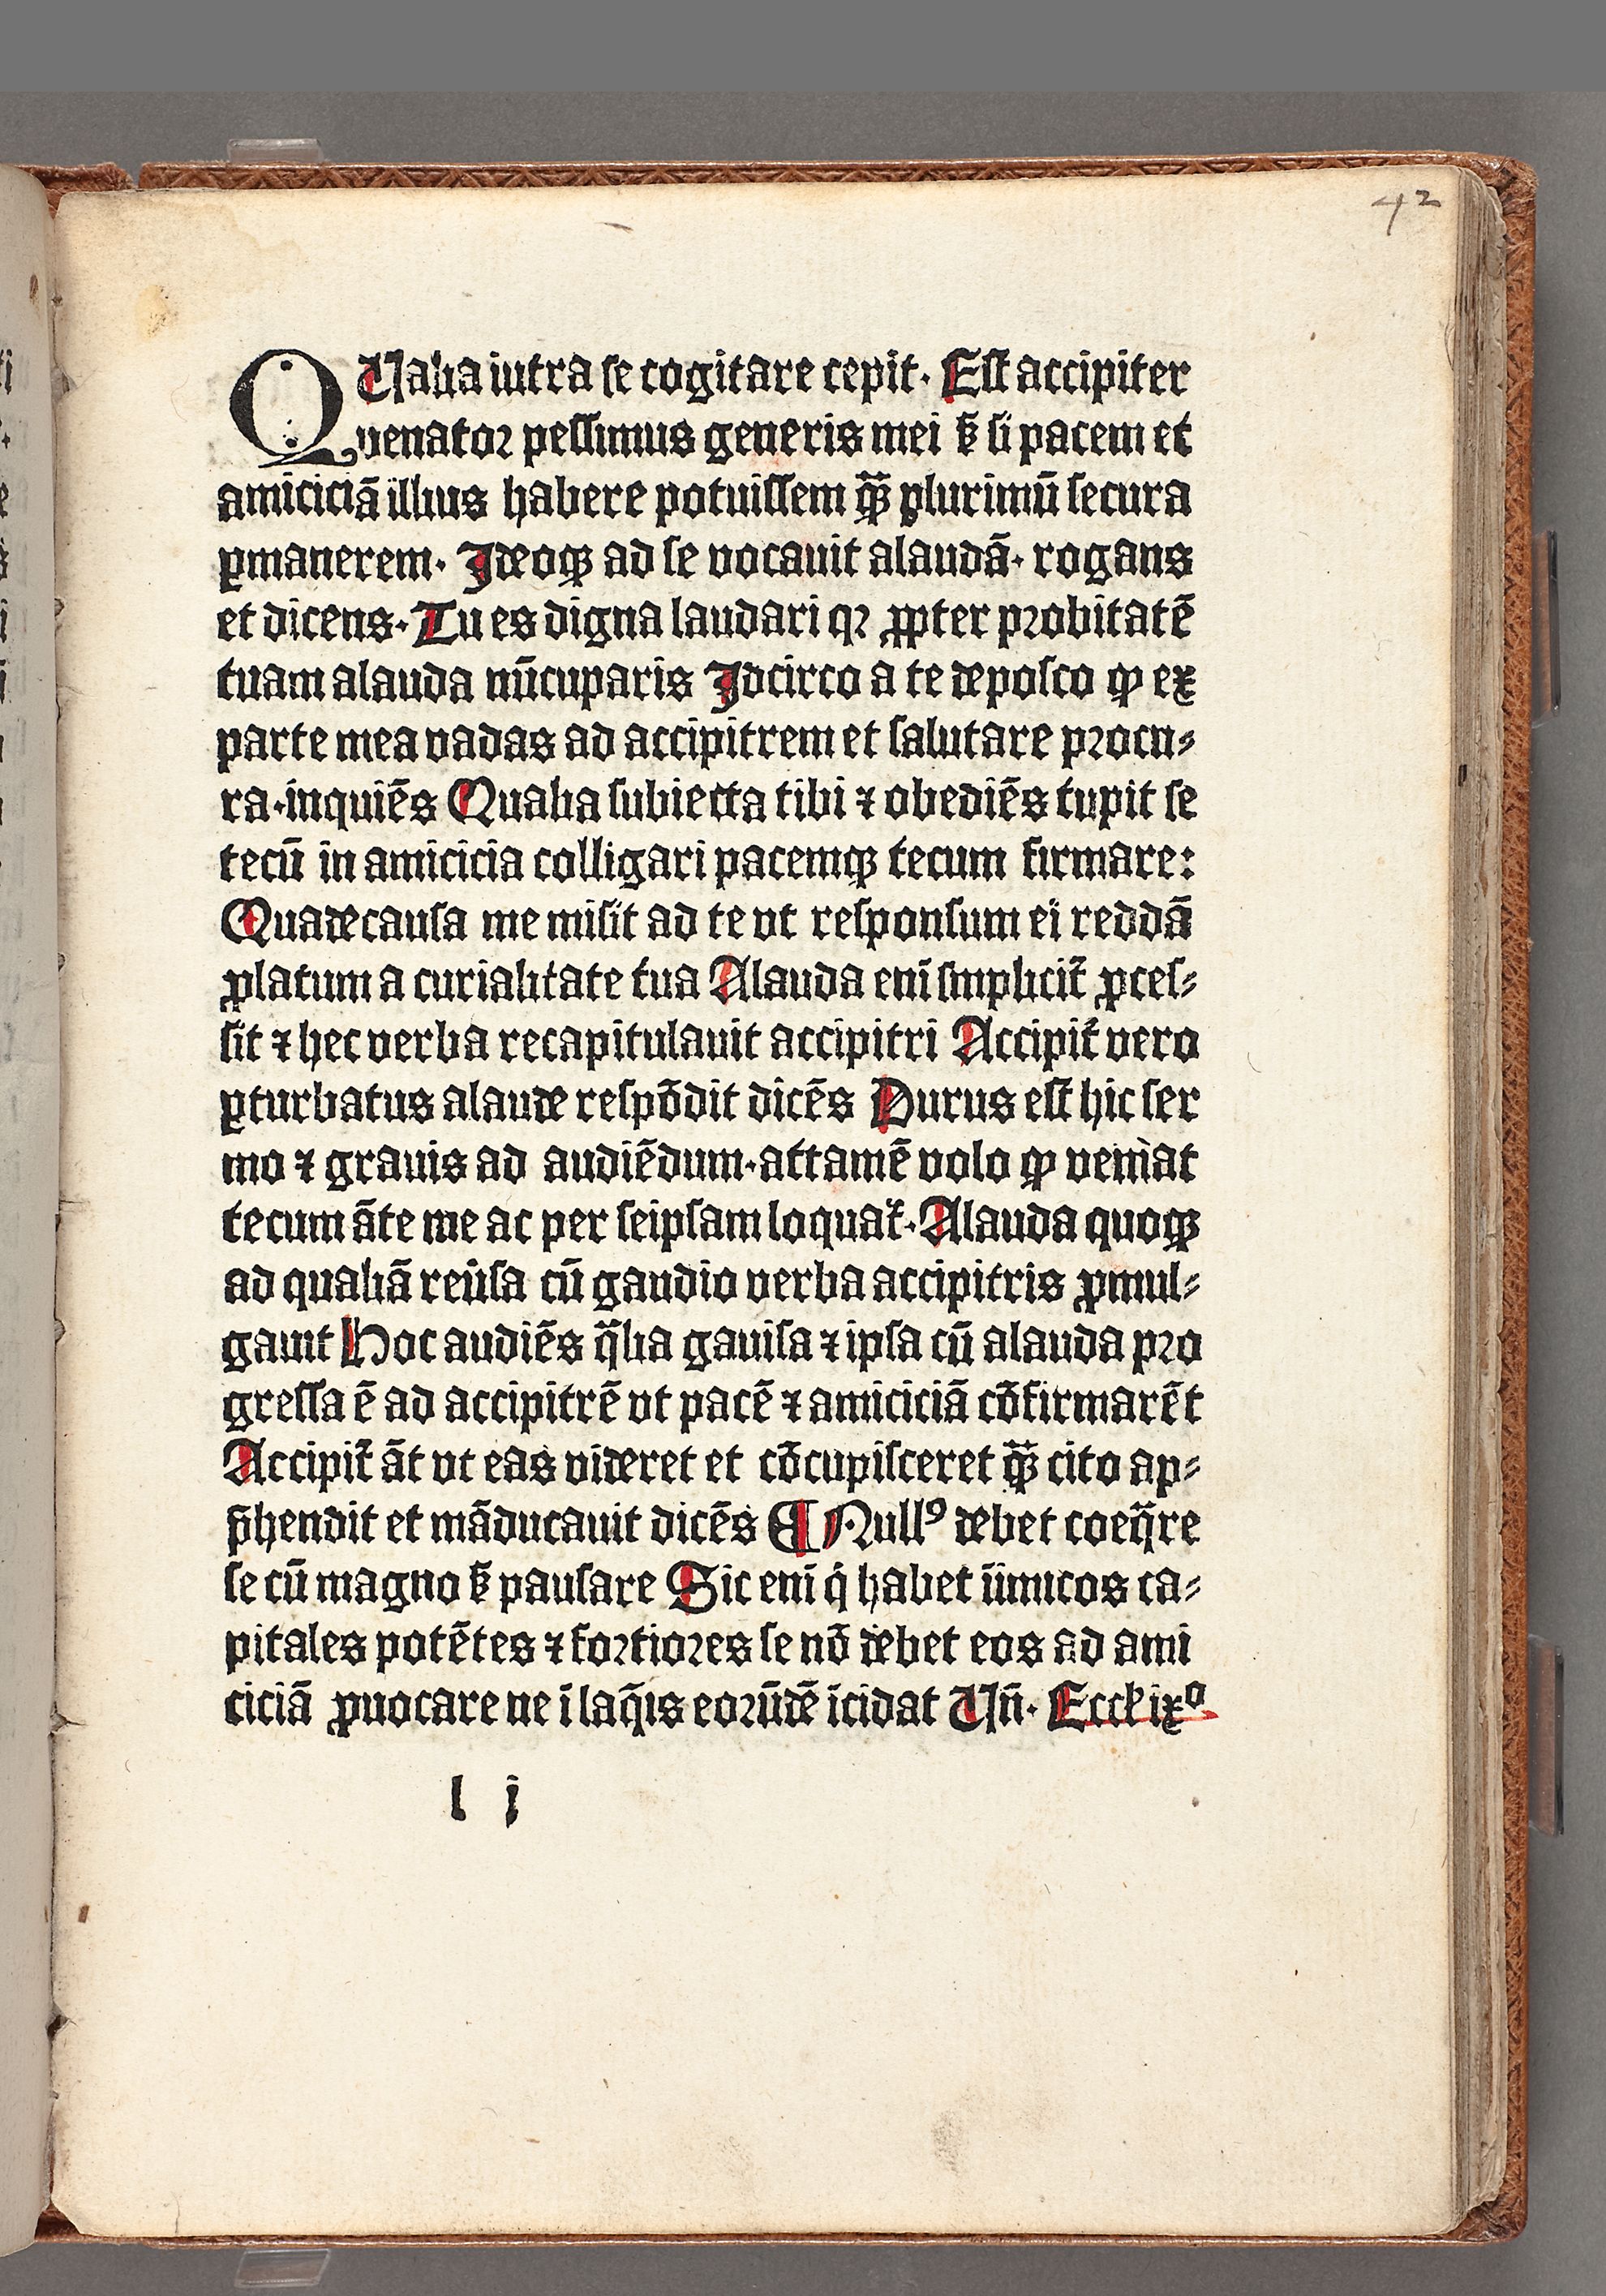 42
QUalia intra se cogitare cepit· Est accipiter
venatoꝛ pessimus generis mei sꝫ si pacem et
amiciciā illius habere potuissem qꝫ̄ plurimū secura
ꝑmanerem· Ideoqꝫ ad se vocauit alaudā· rogans
et dicens· Tu es digna laudari qꝛ ꝓpter pꝛobitatē
tuam alauda nūcuparis Idcirco a te deposco ꝙ ex
parte mea vadas ad accipitrem et salutare pꝛocu⸗
ra·inquiēs Qualia subiecta tibi ⁊ obediēs cupit se
tecū in amicicia colligari pacemqꝫ tecum firmare:
Qua de causa me misit ad te vt responsum ei reddā
ꝓlatum a curialitate tua Alauda eni̅ simplicit̄ ꝓces⸗
sit ⁊ hec verba recapitulauit accipitri Accipit̄ vero
ꝑturbatus alaude respōdit dicēs Durus est hic ser
mo ⁊ grauis ad audiēdum·attamē volo ꝙ veniat
tecum āte me ac per seipsam loquat̄·Alauda quoqꝫ
ad qualiā reu̅sa cū gaudio verba accipitris ꝓmul⸗
gauit Hoc audiēs q̄lia gauisa ⁊ ipsa cū alauda pꝛo
gressa ē ad accipitrē vt pacē ⁊ amiciciā cōfirmarēt
Accipit̄ āt vt eas videret et cōcupisceret qꝫ̄ cito ap⸗
p̄hendit et māducauit dicēs ¶ Nullꝰ debet coeq̄re
se cū magno sꝫ pausare Sic eni̅ q̇ habet iīmicos ca⸗
pitales potētes ⁊ foꝛtioꝛes se nō debet eos ad ami
ciciā ꝓuocare ne ī laq̄is eoꝛūdē īcidat Un̄· Eccłi ixº
l j